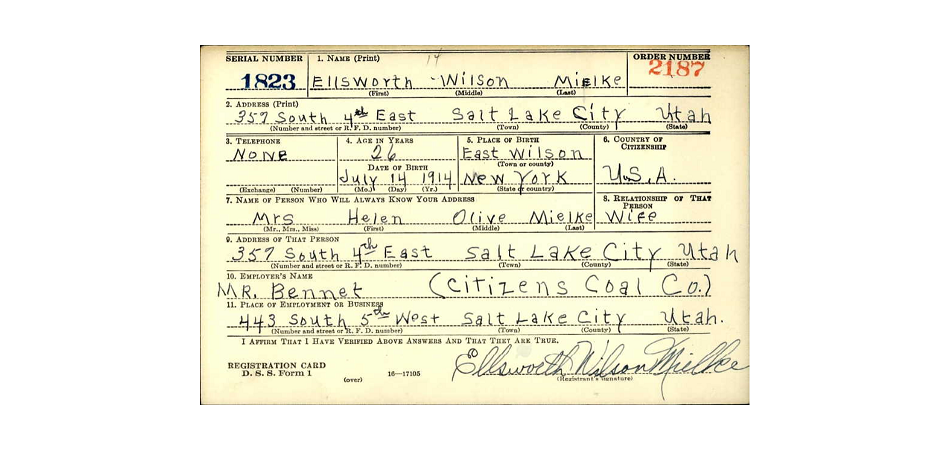 SERIAL NUMBER 1. NAME (Print) 14 ORDER NUMBER
1823 Ellsworth Wilson Mielke 2187
(First) (Middle) (Last)
2. ADDRESS (Print)
357 South 4th East Salt Lake City Utah
(Number and street or R. F. D. number) (Town) (County) (State)
3. TELEPHONE 4. AGE IN YEARS 5. PLACE OF BIRTH 6. COUNTRY OF CITIZENSHIP
None 26 East Wilson
DATE OF BIRTH (Town or county)
July 14 1914 New York U.S.A.
(Exchange) (Number) (Mo.) (Day) (Yr.) (State or country)
7. NAME OF PERSON WHO WILL ALWAYS KNOW YOUR ADDRESS 8. RELATIONSHIP OF THAT PERSON
Mrs Helen Olive Mielke Wife
(Mr., Mrs., Miss) (First) (Middle) (Last)
9. ADDRESS OF THAT PERSON
357 South 4th East Salt Lake City Utah
(Number and street or R. F. D. number) (Town) (County) (State)
10. EMPLOYER'S NAME
Mr. Bennet (Citizens Coal Co.)
11. PLACE OF EMPLOYMENT OR BUSINESS
443 South 5th West Salt Lake City Utah.
(Number and street or R. F. D. number) (Town) (County) (State)
I AFFIRM THAT I HAVE VERIFIED ABOVE ANSWERS AND THAT THEY ARE TRUE.
REGISTRATION CARD Ellsworth Wilson Mielke
D. S. S. Form 1 (over) 16—17105 (Registrant's signature)